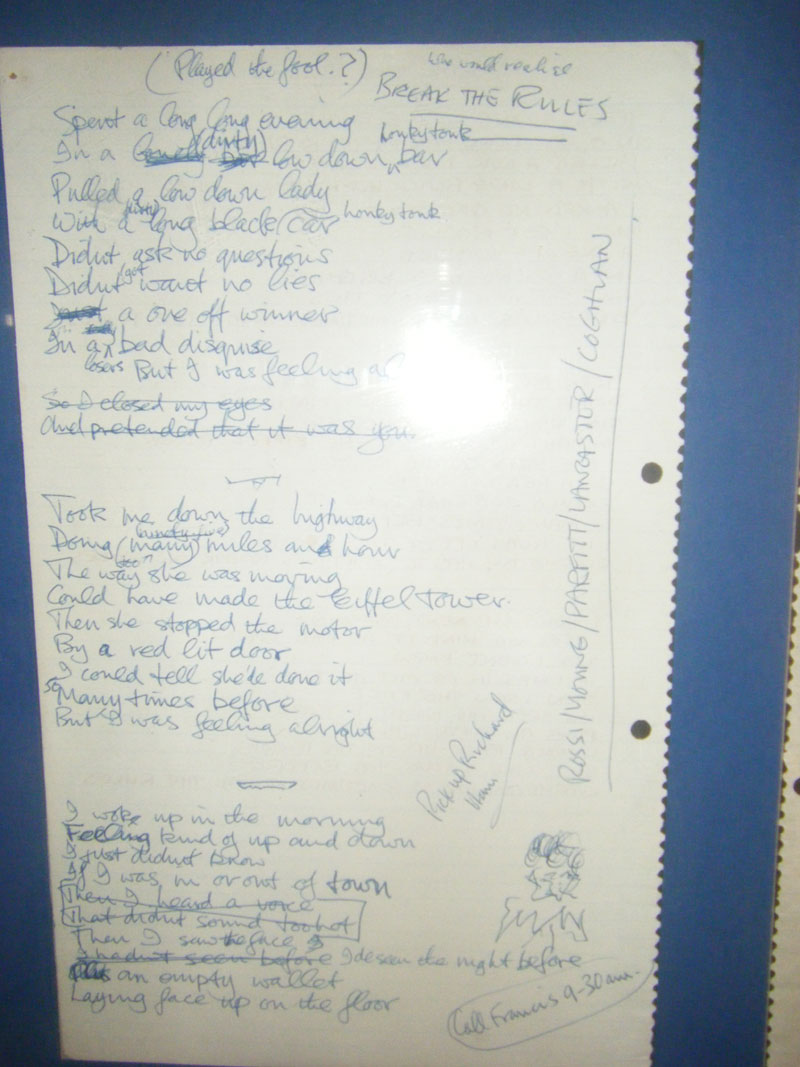 (Played the fool.?)
who would realise
BREAK THE RULES
Spent a long long evening
In a lonely (dirty) bar low down honkytonk bar
Pulled a low down lady
With a dirty long black car honky tonk
Didnt ask no questions
Didnt get want no lies
Just a one off winner
In a bad disguise
losers But I was feeling al
So I closed my eyes
And pretended that it was you.
Took me down the highway
Doing (many) ninety five miles and hour
The way she was moving
Could have made the Eiffel Tower.
Then she stopped the motor
By a red lit door
I could tell she'de done it
so Many times before
But I was feeling alright
I woke up in the morning
Feeling kind of up and down
I just didnt know
If I was in or out of town
Then I heard a voice
That didnt sound too hot
Then I saw the face
I hadnt seen before I de seen the night before
an empty wallet
Laying face up on the floor
ROSSI/YOUNG/PARFITT/LANCASTOR/COGHLAN
Pick up Richard
Call Francis 9-30am.